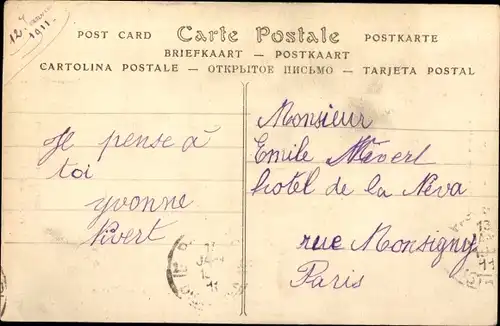 12 Janvier
1911.
POST CARD Carte Postale POSTKARTE
BRIEFKAART — POSTKAART
CARTOLINA POSTALE — ОТКРЫТОЕ ПИСЬМО — TARJETA POSTAL
Je pense à
toi
yvonne
Monsieur
Emile
hotel de la Néva
rue Monsigny
Paris